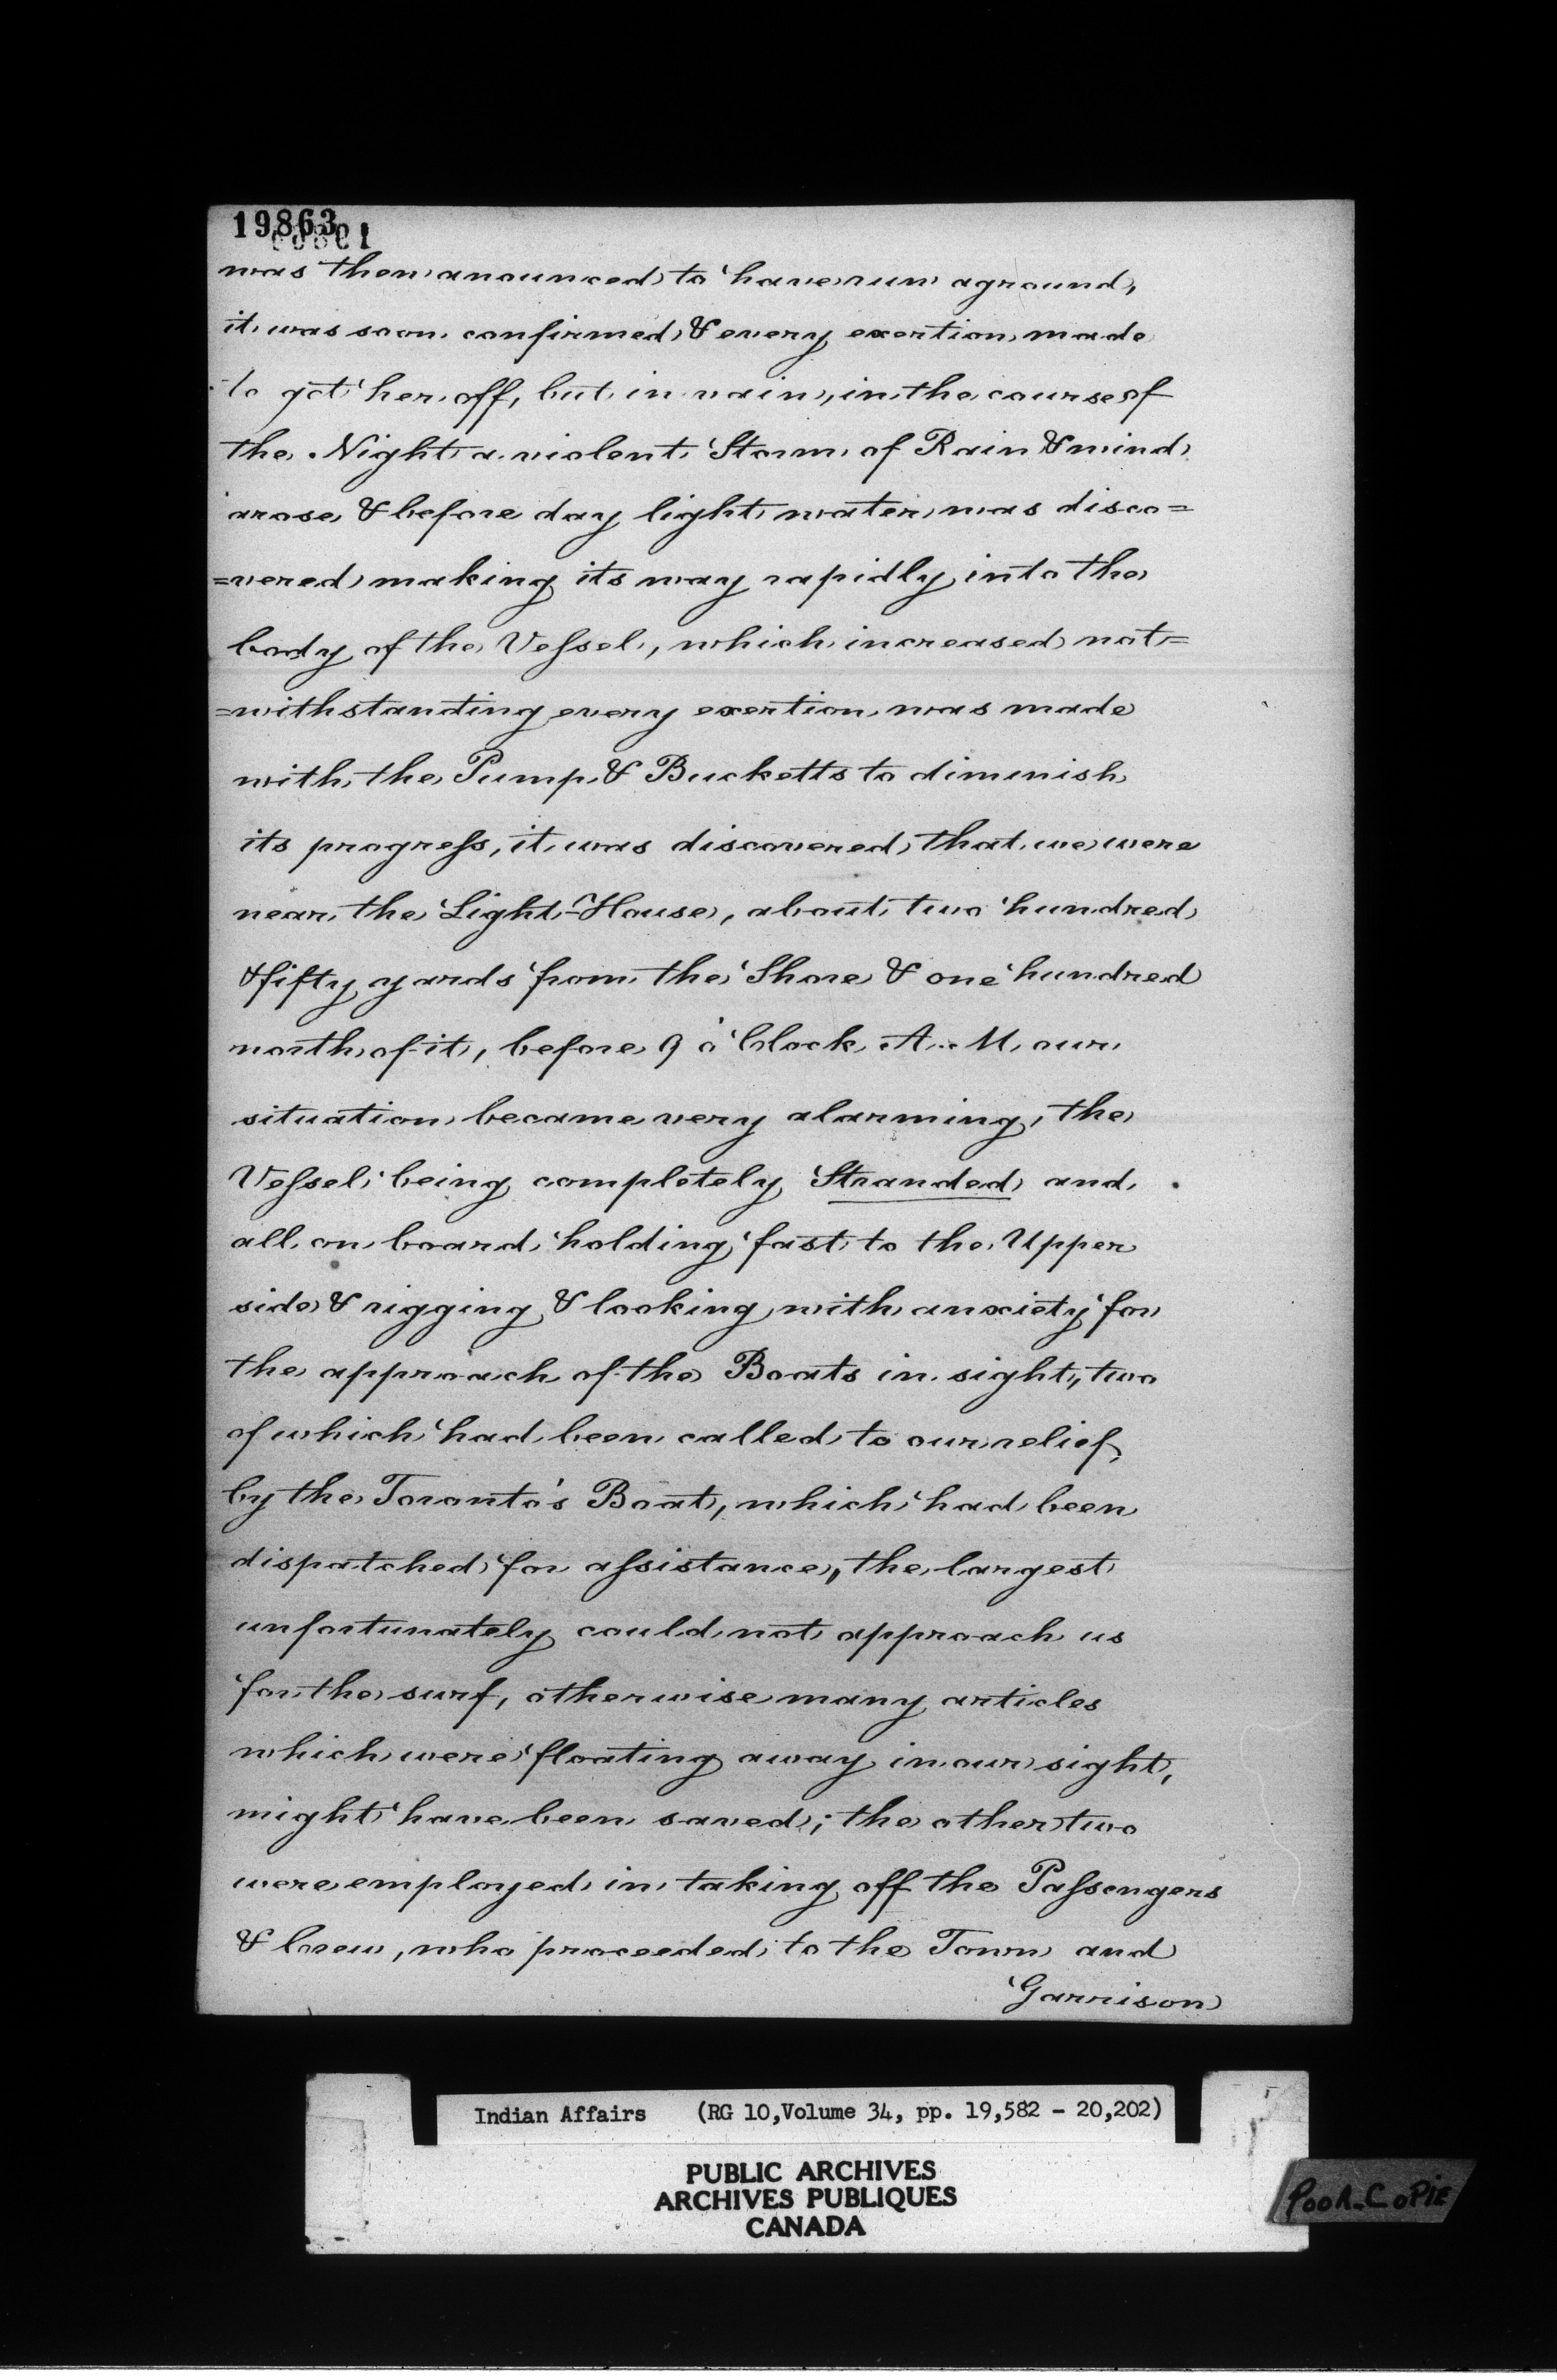 19863
was then anounced to have run aground,
it was soon confirmed & every exertion made
to get her off, but in vain, in the course of
the Night a violent Storm of Rain & wind
arose & before day light water was disco=
=vered making its way rapidly into the
body of the Vessel, which increased not=
=withstanding every exertion was made
with the Pump & Bucketts to diminish
its progress, it was discovered that we were
near the Light-House, about two hundred
& fifty yards from the Shore & one hundred
north of it, before 9 o'Clock A.M. our
situation became very alarming, the
Vessel being completely Stranded and
all on board holding fast to the Upper
side & rigging & looking with anxiety for
the approach of the Boats in sight, two
of which had been called to our relief
by the Toronto's Boat, which had been
dispatched for assistance, the largest
unfortunately could not approach us
for the surf, otherwise many articles
which were floating away in our sight,
might have been saved; the other two
were employed in taking off the Passengers
& Crew, who proceeded to the Town and
Garrison
Indian Affairs (RG 10, Volume 34, pp. 19,582 - 20,202)
PUBLIC ARCHIVES
ARCHIVES PUBLIQUES
CANADA
POOR COPIE